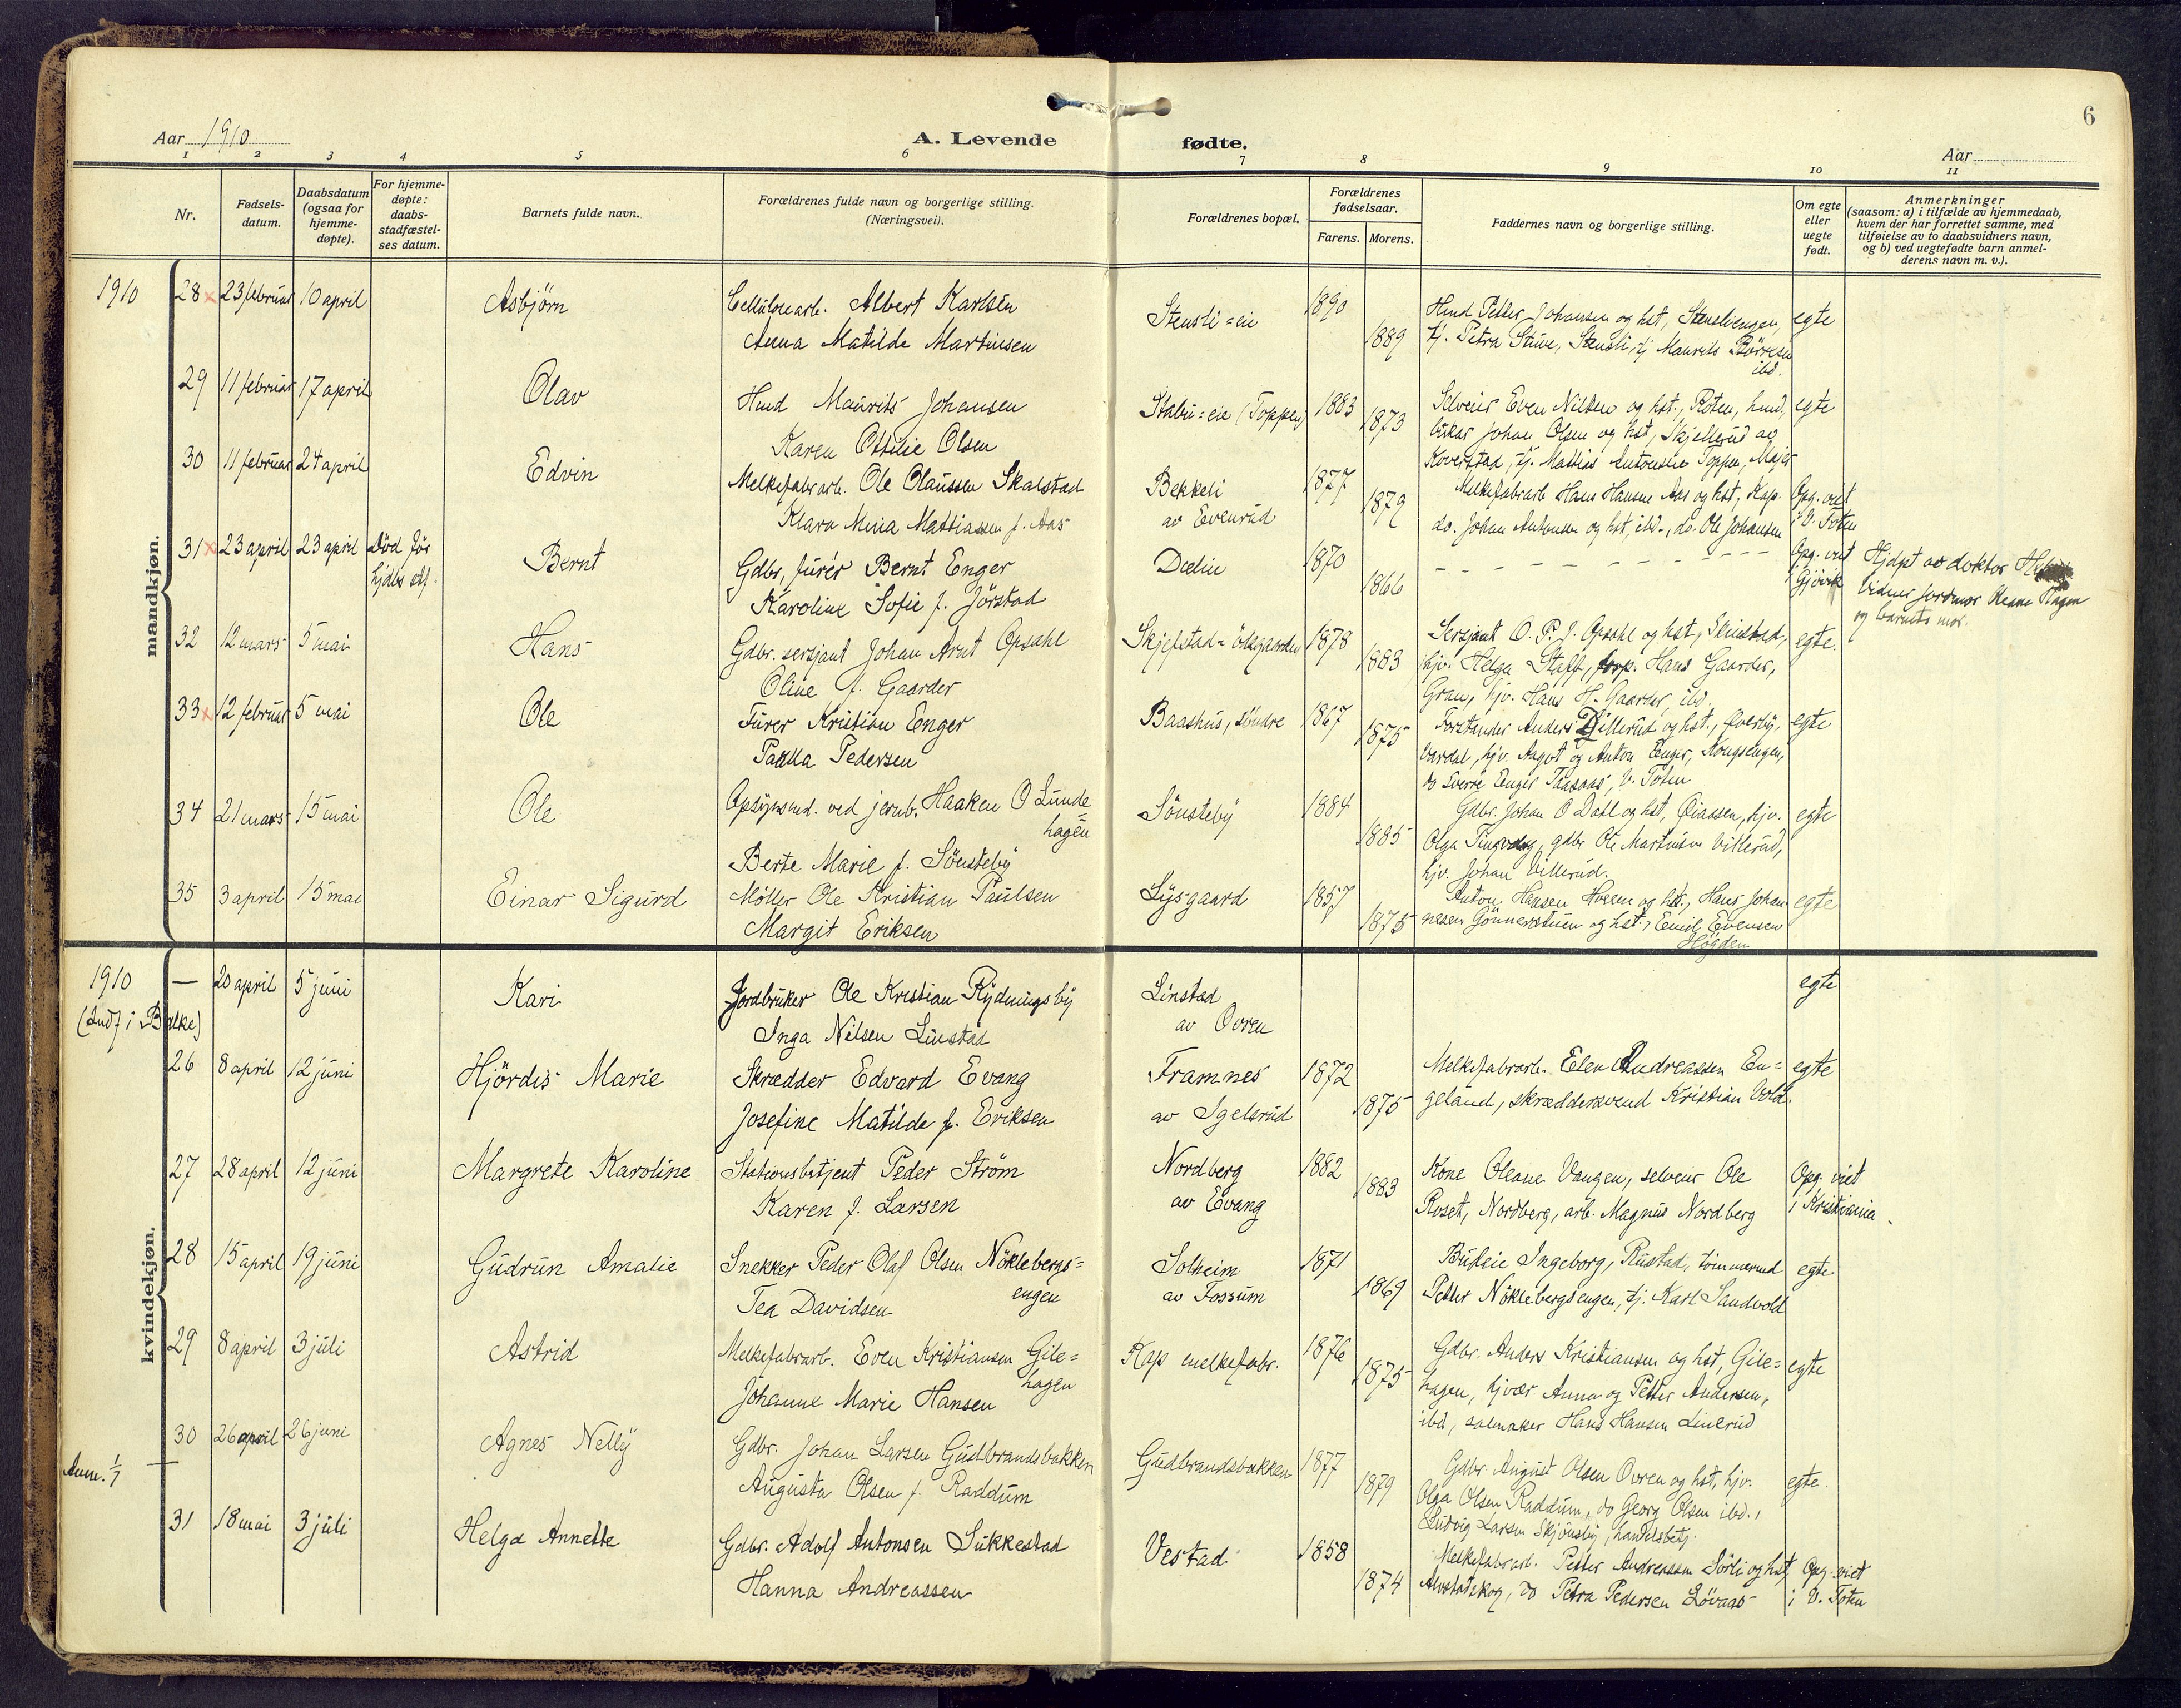 6
Aar 1910
A. Levende fødte.
Aar
1 2 3 4 5 6 7 8 9 10 11
Nr.
Fødsels-
datum.
Daabsdatum
(ogsaa for
hjemme-
døpte).
For hjemme-
døpte:
daabs-
stadfæstel-
ses datum.
Barnets fulde navn.
Forældrenes fulde navn og borgerlige stilling.
(Næringsvei).
Forældrenes bopæl.
Forældrenes
fødselsaar.
Farens. Morens.
Faddernes navn og borgerlige stilling.
Om egte
eller
uegte
født.
Anmerkninger
(saasom: a) i tilfælde av hjemmedaab,
hvem der har forrettet samme, med
tilføielse av to daabsvidners navn,
og b) ved uegtefødte barn anmel-
derens navn m. v.).
mandkjøn.
1910
28 x 23 februar 10 april Asbjörn
Cellulosearb. Albert Karlsen
Anna Matilde Martinsen
Stensli=eie
1890
1889
Hmd Petter Johansen og hst, Stensliengen,
tj. Petra Stuve, Stensli, tj Maurits Börresen
ibd.
egte
29 11 februar 17 april Olav
Hmd Maurits Johansen
Karen Ottilie Olsen
Stabu=eie (Toppen)
1883
1873
Selveier Even Nilsen og hst., Roten, hmd,
bruker Johan Olsen og hst, Skjellerud av
Koverstad, tj. Mattias Antonsen Toppen, Majer
egte
30 11 februar 24 april Edvin
Melkefabrarb. Ole Olaussen Skalstad
Klara Mina Mattiassen f. Aas
Bekkeli
av Evenrud
1877
1879
Melkefabrarb Hans Hansen Aas og hst, Kap.
do. Johan Antonsen og hst, ibd., do. Ole Johansen
Opg. viet
i V. Toten
31 x 23 april 23 april Död för
hjdbs stf.
Bernt
Gdbr, furér Bernt Enger
Karoline Sofie f. Jörstad
Dælin
1870
1866
- - - - - - - - - - - -
Opg. viet
i Gjövik
Hjdpt av doktor
Vidner jordmor Hagen
og barnets mor.
32 12 mars 5 mai Hans
Gdbr. sersjant Johan Arnt Opsahl
Oline f. Gaarder
Skjefstad=ödegaarden
1878
1883
Sersjant O. P. J. Opsahl og hst, Skinstad,
hjv. Helga Staff, korp. Hans Gaarder,
Gran, hjv. Hans H. Gaarder, ibd.
egte.
33 x 12 februar 5 mai Ole
Furer Kristian Enger
Paulla Pedersen
Baashus, söndre
1867
1875
Forstander Anders Dillerud og hst., Överby,
Vardal, hjv. Aagot og Anton Enger, Kongsengen,
do Sverre Enger Paasaas, V. Toten
egte
34 21 mars 15 mai Ole
Opsynsmd. ved jernb. Haaken O Lunde=
hagen
Berte Marie f. Sönsteby
Sönsteby
1884
1885
Gdbr. Johan O Dahl og hst, Öiaasen, hjv.
Olga Tingvoly, gdbr Ole Martinsen Villerud,
hjv. Johan Villerud.
egte
35 3 april 15 mai Einar Sigurd
Möller Ole Kristian Paulsen
Margit Eriksen
Lysgaard
1857
1875
Anton Hansen Hveem og hst, Hans Johan
nesen Gönnerstuen og hst., Emil Evensen
Högden
egte
kvindekjøn.
1910
(Indf. i Balke)
— 20 april 5 juni Kari
Jordbruker Ole Kristian Rydningsby
Inga Nilsen Linstad
Linstad
av Ovren
egte
26 8 april 12 juni Hjördis Marie
Skrædder Edvard Evang
Josefine Matilde f. Eriksen
Framnes
av Igelsrud
1872
1875
Melkefabrarb. Elen Andreassen En=
geland, skræddersvend Kristian Vold.
egte
27 28 april 12 juni Margrete Karoline
Stationsbetjent Peder Ström
Karen f. Larsen
Nordberg
av Evang
1882
1883
Kone Oleane Vangen, selveier Ole
Roset, Nordberg, arb. Magnus Nordberg
Opg. viet
i Kristiania
28 15 april 19 juni Gudrun Amalie
Snekker Peder Olaf Olsen Nöklebergs=
engen
Tea Davidsen
Solheim
av Fossum
1871
1869
Budeie Ingeborg, Rustad, tömmermd
Petter Nöklebergsengen, tj. Karl Sandvold
egte
29 8 april 3 juli Astrid
Melkefabrarb. Even Kristiansen Gile=
hagen
Johanne Marie Hansen
Kap melkefabr.
1876
1875
Gdbr. Anders Kristiansen og hst, Gile=
hagen, hjvær Anna og Petter Andersen,
ibd, salmaker Hans Hansen Linerud
egte
30 26 april 26 juni Agnes Nelly
Gdbr. Johan Larsen Gudbrandsbakken
Augusta Olsen f. Raddum
Gudbrandsbakken
1877
1879
Gdbr. August Olsen Ovren og hst, hjv.
Olga Olsen Raddum, do Georg Olsen ibd.,
Ludvig Larsen Skjönsby, handelsbetj.
egte.
Anm. 1/7
31 18 mai 3 juli Helga Annette
Gdbr. Adolf Antonsen Sukkestad
Hanna Andreassen
Vestad
1858
1874
Melkefabrarb. Petter Andreassen Sörli og hst,
Alvstadskog, do Petra Pedersen Lövaas
Opg. viet
i V. Toten